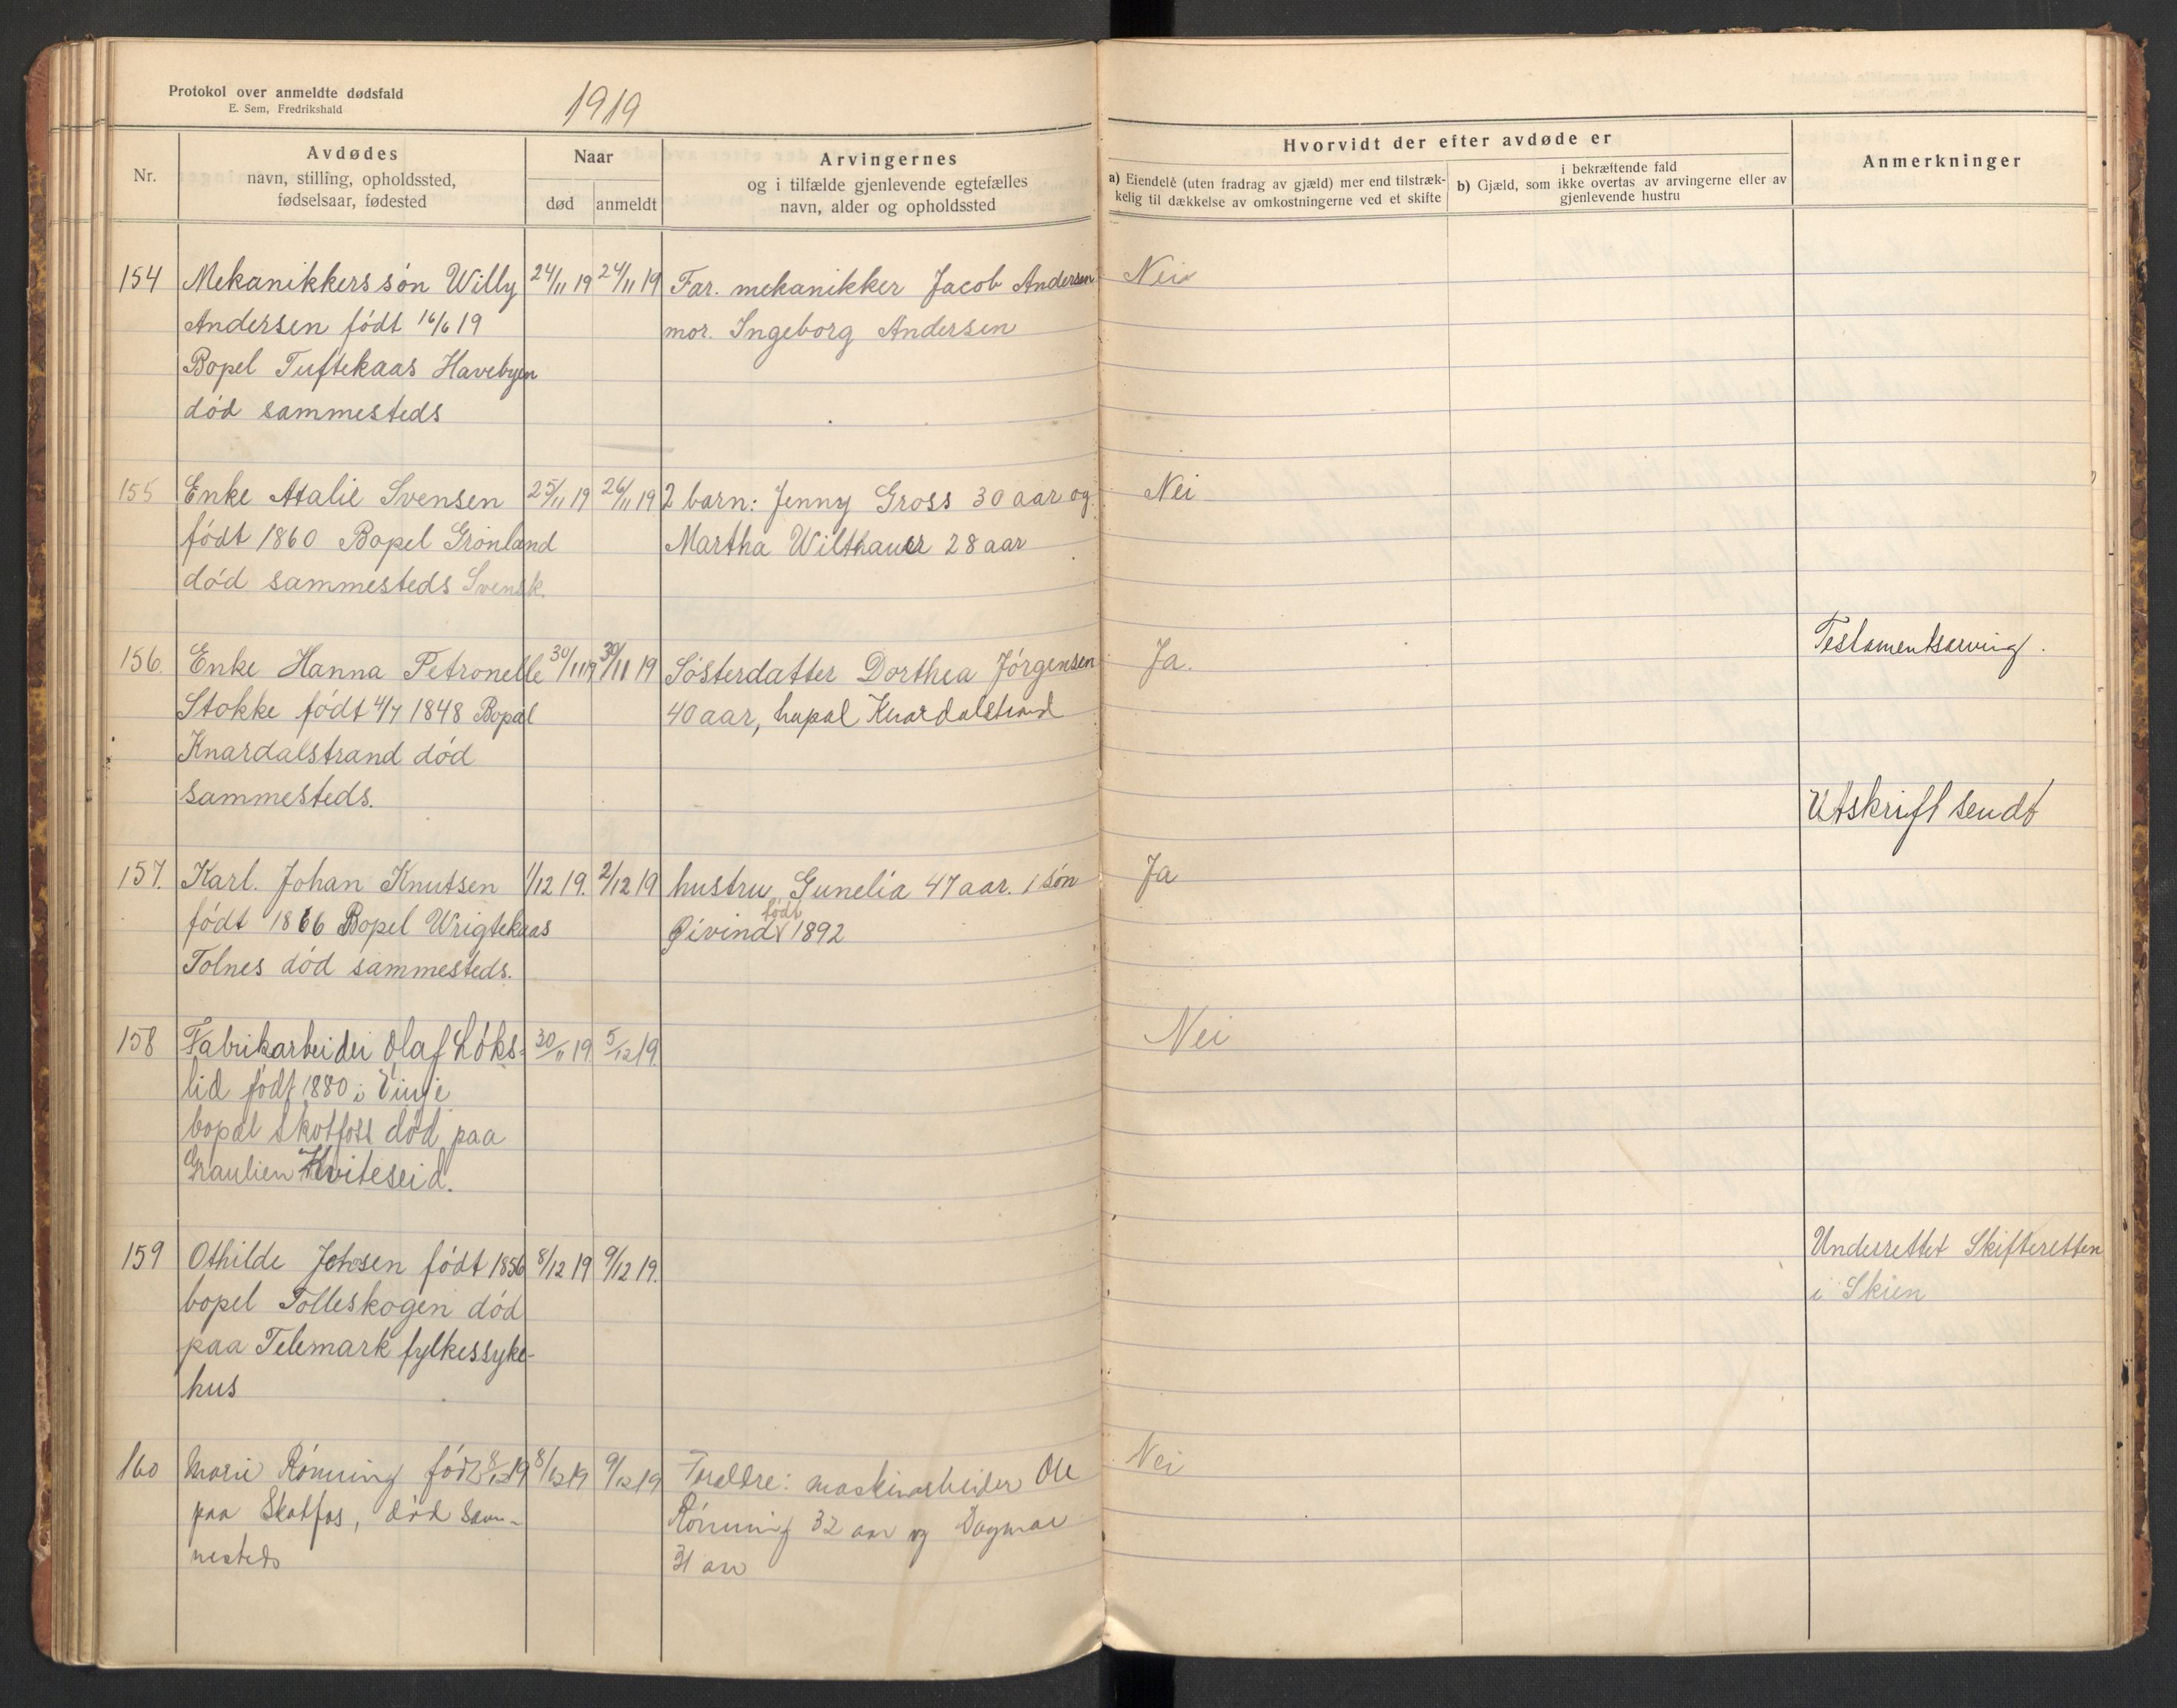 Protokol over anmeldte dødsfald
E. Sem, Fredrikshald
1919
Nr.
Avdødes
navn, stilling, opholdssted,
fødselsaar, fødested
Naar
død
anmeldt
Arvingernes
og i tilfælde gjenlevende egtefælles
navn, alder og opholdssted
Hvorvidt der efter avdøde er
a) Eiendele (uten fradrag av gjæld) mer end tilstræk-
kelig til dækkelse av omkostningerne ved et skifte
i bekræftende fald
b) Gjæld, som ikke overtas av arvingerne eller av
gjenlevende hustru
Anmerkninger
154 Mekanikkers søn Willy 24/11 19 24/11 19 Far. mekanikker Jacob Andersen Nei
Andersen født 16/6 19 mor. Ingeborg Andersen
Bopel Tuftekaas Havebyen
død sammesteds
155 Enke Atalie Svensen 25/11 19 26/11 19 2 barn: Jenny Gross 30 aar og Nei
født 1860 Bopel Grønland Martha Wilthauer 28 aar
død sammesteds Svensk.
Testamentsarving.
156. Enke Hanna Petronelle 30/11 19 30/11 19 Søsterdatter Dorthea Jørgensen Ja.
Stokke født 4/7 1848 Bopæl 40 aar, bopæl Knardalstrand
Knardalstrand død
sammesteds.
Utskrift sendt
157. Karl. Johan Knutsen 1/12 19. 2/12 19 hustru Gunelia 47 aar. 1 søn Ja
født 1866 Bopel Wrigtekaas Øivind født 1892
Tolnes død sammesteds.
158 Fabrikarbeider Olaf Løks- 30/11 19 5/12 19. Nei
lid født 1880 i Vinje
bopæl Skotfoss død paa
Graulien Hviteseid.
159 Othilde Johsen født 1856 8/12 19 9/12 19. Underrettet Skifteretten
bopel Tolleskogen død i Skien
paa Telemark fylkessyke-
hus
160 Marie Rønning født 8/12 19 8/12 19 9/12 19 Forældre: maskinarbeider Ole Nei
paa Skotfos, død sam- Rønning 32 aar og Dagmar
mesteds 31 aar